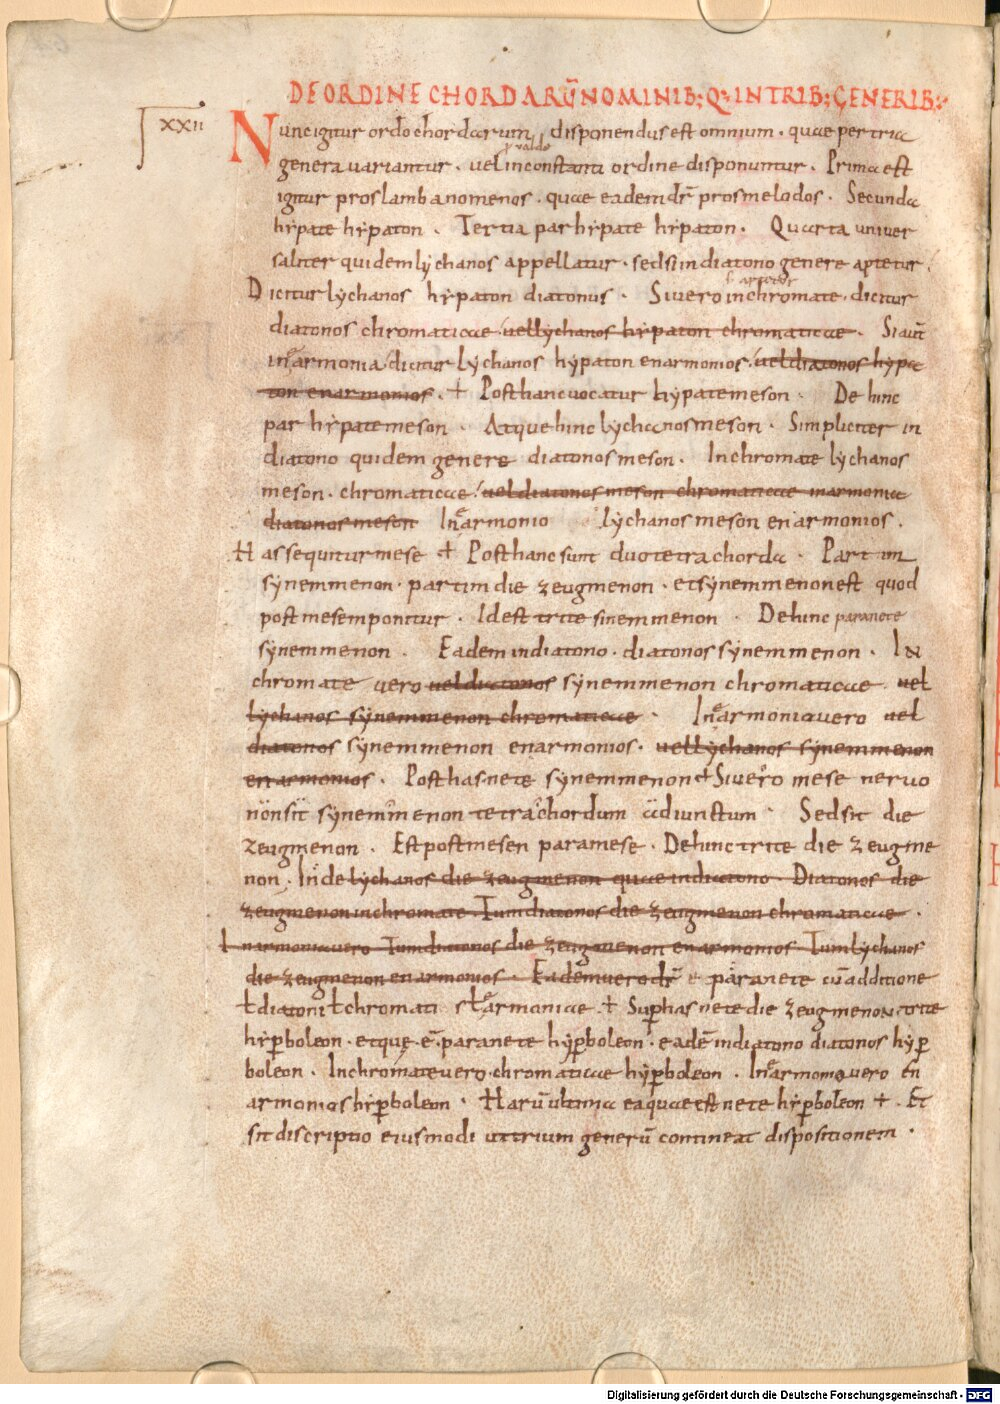 DE ORDINE CHORDARŪ NOMINIB; Q; IN TRIB; GENERIB;
XXII
Nunc igitur ordo chordarum disponendus est omnium · quae per tria
ł valde
genera variantur · vel inconstanti ordine disponuntur · Prima est
igitur proslambanomenos · quae eadem dr̄ prosmelodos · Secunda
hẏpate hẏpaton · Tertia par hẏpate hẏpaton · Quarta univer
saliter quidem lẏchanos appellatur · sed si in diatono genere aptetur ·
Dicitur lẏchanos hẏpaton diatonus · Si vero in chromate · dicitur
s aptetur
diatonos chromaticae vel lẏchanos hẏpaton chromaticae · Si aut̄
in armonia dicitur lẏchanos hẏpaton enarmonios vel diatonos hẏpa
ton enarmonios · + Post hanc vocatur hẏpate meson · De hinc
par hẏpate meson · Atque hinc lẏchanos meson · Simpliciter in
diatono quidem genere diatonos meson · In chromate lẏchanos
meson · chromaticae vel diatonos meson chromaticae in armonia
diatonos meson In armonio lẏchanos meson enarmonios ·
Has sequitur mese + Post hanc sunt duo tetrachorda · Partim
sẏnemmenon · partim die zeugmenon · et sẏnemmenon est quod
post mesem ponitur · Id est trite sinemmenon · De hinc paranete
sẏnemmenon · Eadem in diatono · diatonos sẏnemmenon · IN
chromate vero vel diatonos sẏnemmenon chromaticae vel
lẏchanos sẏnemmenon chromaticae · In armonia vero vel
diatonos sẏnemmenon enarmonios · vel lẏchanos sẏnemmenon
enarmonios · Post has nete sẏnemmenon + Si vero mese nervo
non sit sẏnemmenon tetrachordum adiunctum · Sed sit die
zeugmenon · Est post mesen paramese · De hinc trite die zeugme
non · Inde lẏchanos die zeugmenon quae in diatono · Diatonos die
zeugmenon in chromate · Tum diatonos die zeugmenon chromaticae ·
In armonia vero Tum diatonos die zeugmenon enarmonios Tum lẏchanos
die zeugmenon enarmonios · Eadem vero dr̄ paranete cū additione
ł diatoni ł chromati armoniae + Sup has nete die zeugmenon trite
hẏpboleon · etque · ē · paranete hẏpboleon · eadē in diatono diatonos hẏp
boleon · In chromate vero · chromaticae hẏpboleon · In armonia vero en
armonios hẏpboleon · Harū ultima ea quae est nete hẏpboleon + · Et
sit discriptio eius modi ut trium generū contineat dispositionem ·
Digitalisierung gefördert durch die Deutsche Forschungsgemeinschaft - DFG